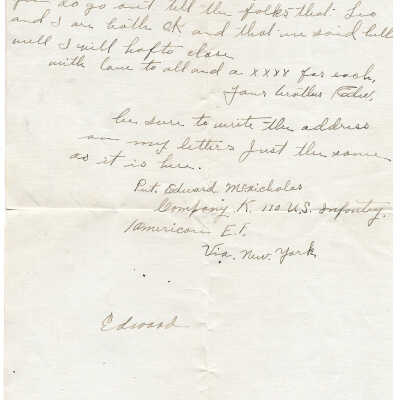 you do go out tell the folks that Leo
and I are both OK and that we said hello
well I will hafto close
with love to all and a xxxx for each,
Your brother Eddie,
be sure to write the address
on my letters just the same
as it is here.
Pvt. Edward McNicholas
Company K. 110 U.S. Infantry.
American E.F.
Via. New. York
Edward